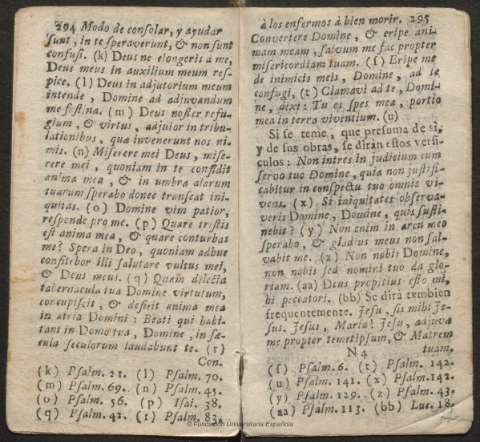 294 Modo de consolar, y ayudar
sunt, in te speraverunt, & non sunt
confusi. (k) Deus ne elongeris a me,
Deus meus in auxilium meum res-
pice. (l) Deus in adjutorium meum
intende, Domine ad adjuvandum
me festina. (m) Deus noster refu-
gium, & virtus, adjutor in tribu-
lationibus, quæ invenerunt nos ni-
mis. (n) Miserere mei Deus, mise-
rere mei, quoniam in te confidit
anima mea, & in umbra alarum
tuarum sperabo donec transeat ini-
quitas. (o) Domine vim patior,
responde pro me. (p) Quare tristis
est anima mea, & quare conturbas
me? Spera in Deo, quoniam adhuc
confitebor illi salutare vultus mei,
& Deus meus. (q) Quam dilecta
tabernacula tua Domine virtutum,
concupiscit, & deficit anima mea
in atria Domini: Beati qui habi-
tant in Domo tua, Domine, in sæ-
cula sæculorum laudabunt te. (r)
Con.
(k) Psalm. 21. (l) Psalm. 70.
(m) Psalm. 69. (n) Psalm. 45.
(o) Psalm. 56. (p) Isai. 38.
(q) Psalm. 42. (r) Psalm. 83.
à los enfermos à bien morir. 295
Convertere Domine, & eripe ani-
mam meam, salvum me fac propter
misericordiam tuam. (s) Eripe me
de inimicis meis, Domine, ad te
confugi, (t) Clamavi ad te, Domi-
ne, dixi: Tu es spes mea, portio
mea in terra viventium. (u)
Si se teme, que presuma de sì,
y de sus obras, se diràn estos versi-
culos: Non intres in judicium cum
servo tuo Domine, quia non justifi-
cabitur in conspectu tuo omnis vi-
vens. (x) Si iniquitates observa-
veris Domine, Domine, quis susti-
nebit? (y) Non enim in arcu meo
sperabo, & gladius meus non sal-
vabit me. (z) Non nobis Domine,
non nobis sed nomini tuo da glo-
riam. (aa) Deus propitius esto mi-
hi peccatori. (bb) Se dirà tambien
frequentemente. Jesu, sis mihi Je-
sus. Jesus, Maria! Jesu, adjuva
me propter temetipsum, & Matrem
N 4 tuam,
(s) Psalm. 6. (t) Psalm. 142.
(u) Psalm. 141. (x) Psalm. 142.
(y) Psalm. 129. (z) Psalm. 43.
(aa) Psalm. 113. (bb) Luc. 18.
© Fundación Universitaria Española